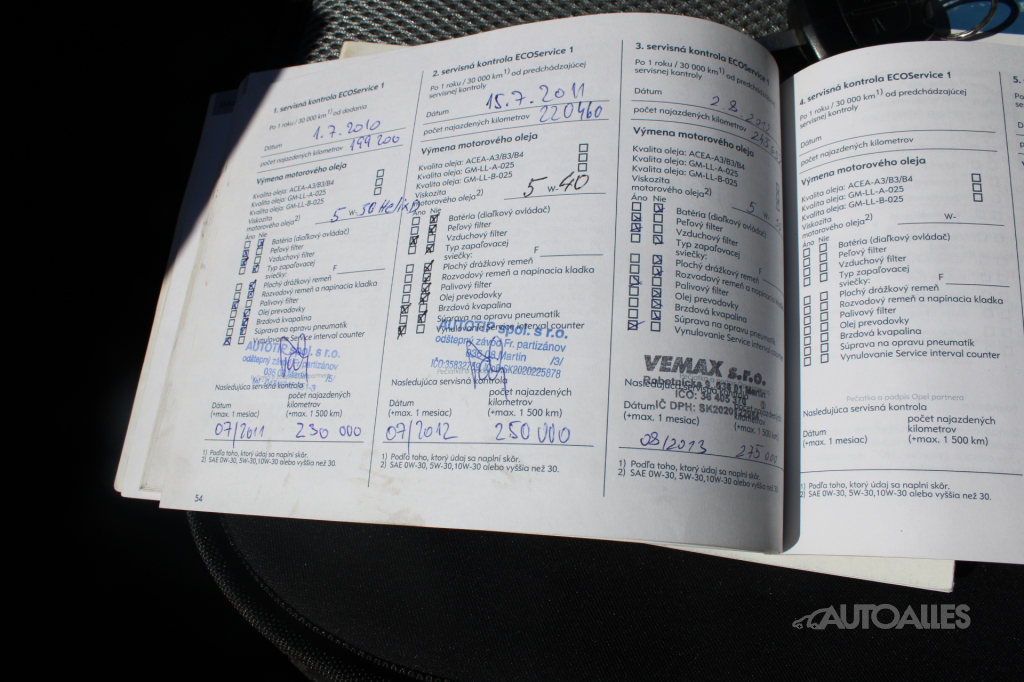 1. servisná kontrola ECOService 1
Po 1 roku / 30 000 km1) od dodania
1.7.2010
Dátum
199 200
počet najazdených kilometrov
Výmena motorového oleja
Kvalita oleja: ACEA-A3/B3/B4
Kvalita oleja: GM-LL-A-025
Kvalita oleja: GM-LL-B-025
Viskozita
motorového oleja2) 5 W- 50 Helix
Áno Nie
Batéria (diaľkový ovládač)
Peľový filter
Vzduchový filter
Typ zapaľovacej
sviečky: F
Plochý drážkový remeň
Rozvodový remeň a napínacia kladka
Palivový filter
Olej prevodovky
Brzdová kvapalina
Súprava na opravu pneumatík
Vynulovanie Service interval counter
AUTOTIP spol. s r.o.
odštepný závod Fr. partizánov
036 01 Martin
Nasledujúca servisná kontrola
počet najazdených
kilometrov
Dátum
(+max. 1 mesiac) (+max. 1 500 km)
07/2011 230 000
1) Podľa toho, ktorý údaj sa naplní skôr.
2) SAE 0W-30, 5W-30,10W-30 alebo vyššia než 30.
54
2. servisná kontrola ECOService 1
Po 1 roku / 30 000 km1) od predchádzajúcej
servisnej kontroly
15.7.2011
Dátum
220460
počet najazdených kilometrov
Výmena motorového oleja
Kvalita oleja: ACEA-A3/B3/B4
Kvalita oleja: GM-LL-A-025
Kvalita oleja: GM-LL-B-025
Viskozita
motorového oleja2) 5 W- 40
Áno Nie
Batéria (diaľkový ovládač)
Peľový filter
Vzduchový filter
Typ zapaľovacej
sviečky: F
Plochý drážkový remeň
Rozvodový remeň a napínacia kladka
Palivový filter
Olej prevodovky
Brzdová kvapalina
Súprava na opravu pneumatík
Vynulovanie Service interval counter
AUTOTIP spol. s r.o.
odštepný závod Fr. partizánov
036 01 Martin /3/
Nasledujúca servisná kontrola
počet najazdených
kilometrov
Dátum
(+max. 1 mesiac) (+max. 1 500 km)
07/2012 250 000
1) Podľa toho, ktorý údaj sa naplní skôr.
2) SAE 0W-30, 5W-30,10W-30 alebo vyššia než 30.
3. servisná kontrola ECOService 1
Po 1 roku / 30 000 km1) od predchádzajúcej
servisnej kontroly
Dátum
počet najazdených kilometrov
Výmena motorového oleja
Kvalita oleja: ACEA-A3/B3/B4
Kvalita oleja: GM-LL-A-025
Kvalita oleja: GM-LL-B-025
Viskozita
motorového oleja2) 5 W-
Áno Nie
Batéria (diaľkový ovládač)
Peľový filter
Vzduchový filter
Typ zapaľovacej
sviečky: F
Plochý drážkový remeň
Rozvodový remeň a napínacia kladka
Palivový filter
Olej prevodovky
Brzdová kvapalina
Súprava na opravu pneumatík
Vynulovanie Service interval counter
VEMAX s.r.o.
Robotnícka 9, 036 01 Martin
Nasledujúca
Dátum
(+max. 1 mesiac) (+max. 1 500 km)
08/2013 275 000
1) Podľa toho, ktorý údaj sa naplní skôr.
2) SAE 0W-30, 5W-30,10W-30 alebo vyššia než 30.
4. servisná kontrola ECOService 1
Po 1 roku / 30 000 km1) od predchádzajúcej
servisnej kontroly
Dátum
počet najazdených kilometrov
Výmena motorového oleja
Kvalita oleja: ACEA-A3/B3/B4
Kvalita oleja: GM-LL-A-025
Kvalita oleja: GM-LL-B-025
Viskozita
motorového oleja2) W-
Áno Nie
Batéria (diaľkový ovládač)
Peľový filter
Vzduchový filter
Typ zapaľovacej
sviečky: F
Plochý drážkový remeň
Rozvodový remeň a napínacia kladka
Palivový filter
Olej prevodovky
Brzdová kvapalina
Súprava na opravu pneumatík
Vynulovanie Service interval counter
Pečiatka a podpis Opel partnera
Nasledujúca servisná kontrola
počet najazdených
kilometrov
Dátum
(+max. 1 mesiac) (+max. 1 500 km)
1) Podľa toho, ktorý údaj sa naplní skôr.
2) SAE 0W-30, 5W-30,10W-30 alebo vyššia než 30.
5.
AUTOALLES